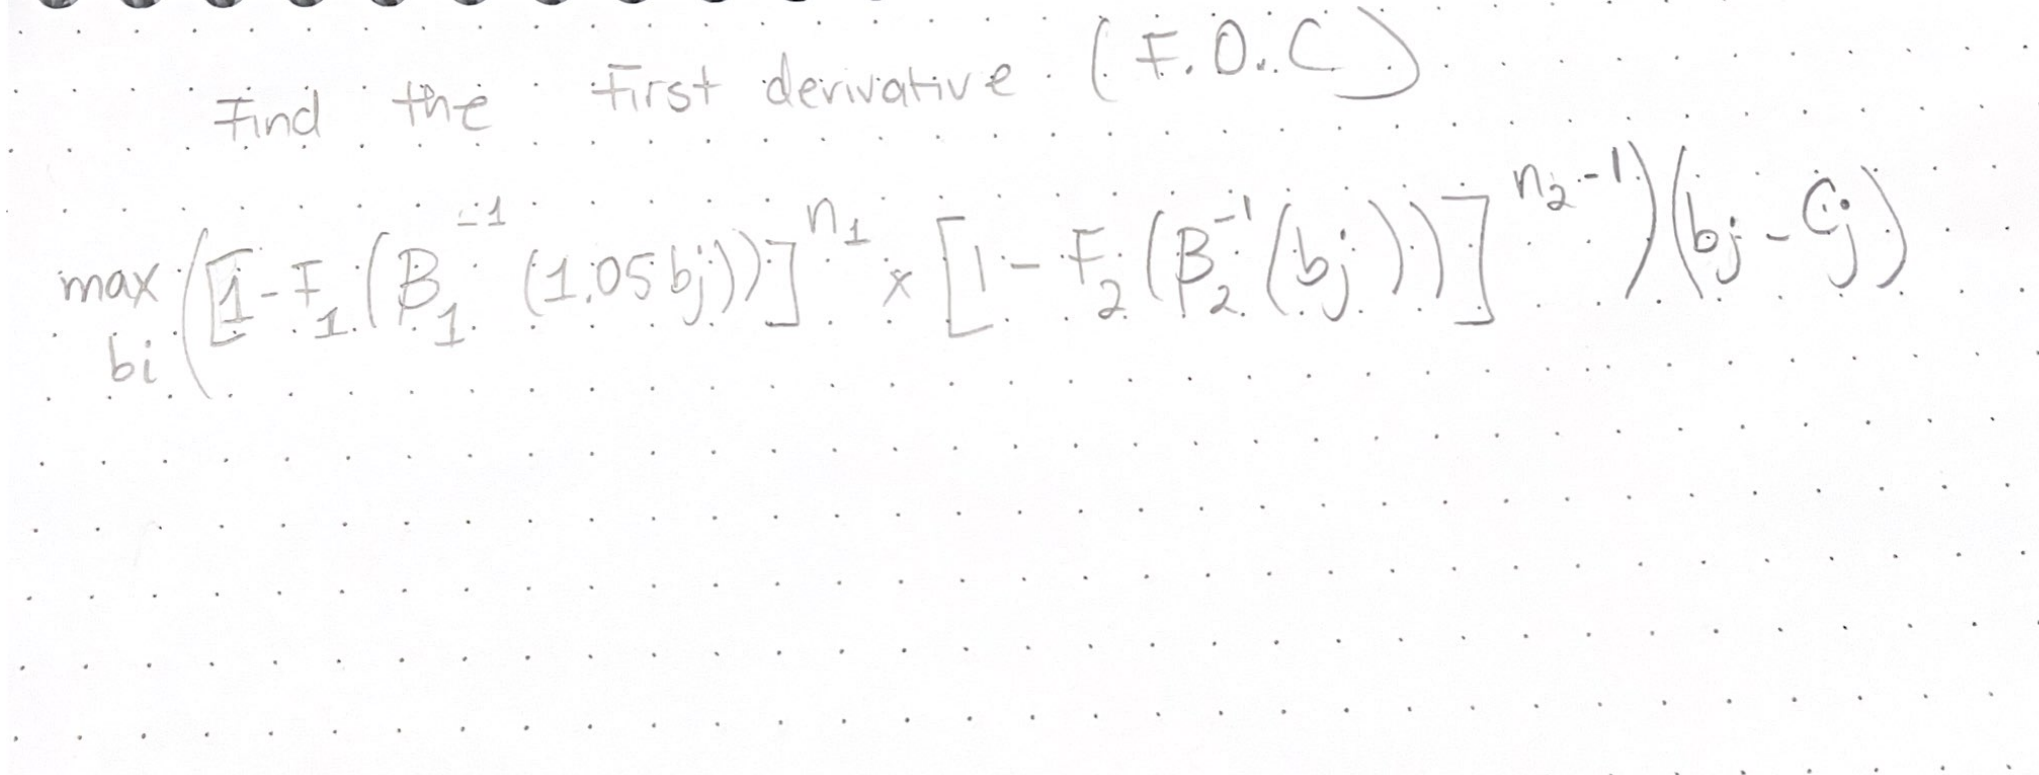 Find the First derivative (F.O.C)
max ([1-F₁(B₁⁻¹(1.05bj))]ⁿ¹ × [1-F₂(B₂⁻¹(bj))]ⁿ²⁻¹)(bj-Cj)
bi